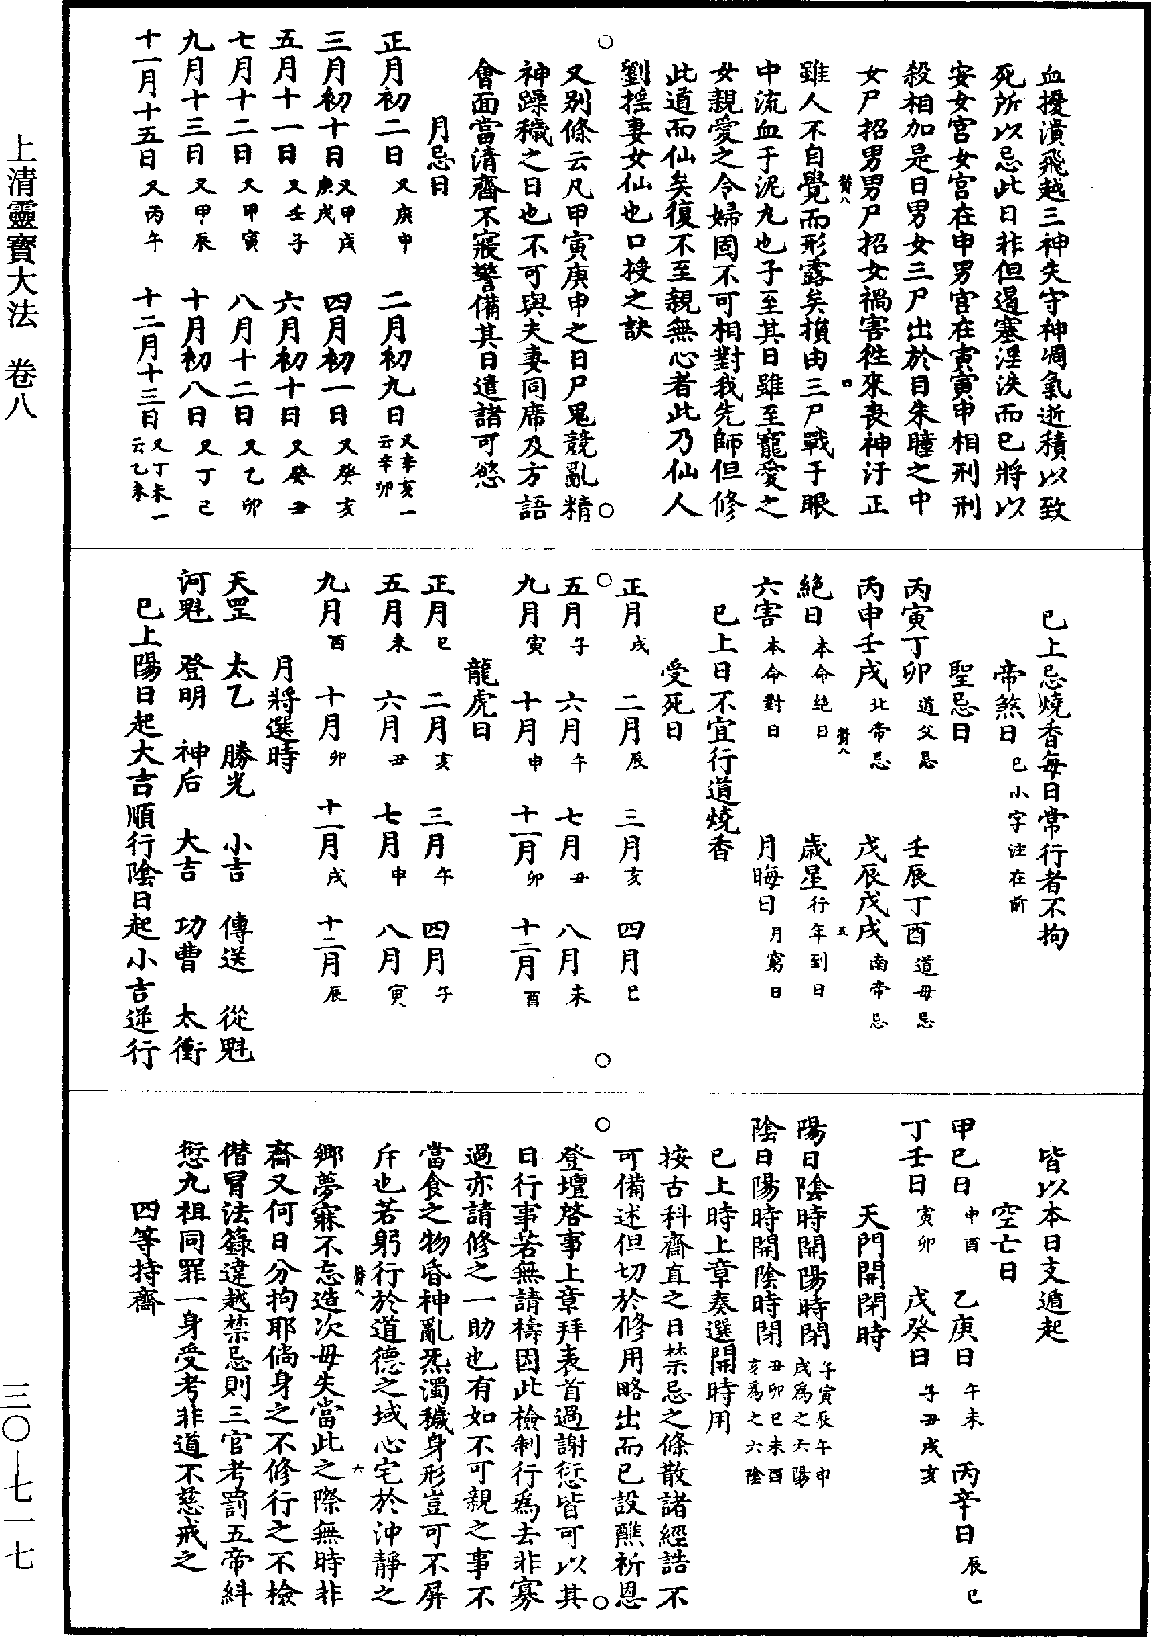 上清靈寶大法　卷八
三〇—七一七
血擾潰飛越三神失守神凋氣逝積以致
死所以忌此日非但遏塞淫泆而已將以
安女宮女宮在申男宮在寅寅申相刑刑
殺相加是日男女三尸出於目朱瞳之中
女尸招男男尸招女禍害往來喪神汙正
雖人不自覺而形露矣損由三尸戰于眼
中流血于泥丸也子至其日雖至寵愛之
女親愛之令婦固不可相對我先師但修
此道而仙矣復不至親無心者此乃仙人
劉搖妻女仙也口授之訣
又別條云凡甲寅庚申之日尸鬼競亂精
神躁穢之日也不可與夫妻同席及方語
會面當清齋不寢警備其日遣諸可慾
月忌日
正月初二日又庚申　二月初九日又辛亥一云辛卯
三月初十日又甲戌庚戌　四月初一日又癸亥
五月十一日又壬子　六月初十日又癸丑
七月十二日又甲寅　八月十二日又乙卯
九月十三日又甲辰　十月初八日又丁已
十一月十五日又丙午　十二月十三日又丁未一云乙未
已上忌燒香每日常行者不拘
帝煞日已小字注在前
聖忌日
丙寅丁卯道父忌　壬辰丁酉道母忌
丙申壬戌北帝忌　戊辰戊戌南帝忌
絕日本命絕日　歲星行年到日
六害本命對日　月晦日月窮日
已上日不宜行道燒香
受死日
正月戌　二月辰　三月亥　四月巳
五月子　六月午　七月丑　八月未
九月寅　十月申　十一月卯　十二月酉
龍虎日
正月巳　二月亥　三月午　四月子
五月未　六月丑　七月申　八月寅
九月酉　十月卯　十一月戌　十二月辰
月將選時
天罡　太乙　勝光　小吉　傳送　從魁
河魁　登明　神后　大吉　功曹　太衝
已上陽日起大吉順行陰日起小吉逆行
皆以本日支遁起
空亡日
甲已日申酉　乙庚日午未　丙辛日辰巳
丁壬日寅卯　戊癸日子丑戌亥
天門開閉時
陽日陰時開陽時閉子寅辰午申戌為之六陽
陰日陽時開陰時閉丑卯巳未酉亥為之六陰
已上時上章奏選開時用
按古科齋直之日禁忌之條散諸經誥不
可備述但切於修用略出而已設醮祈恩
登壇啓事上章拜表首過謝愆皆可以其
日行事若無請禱因此檢制行為去非寡
過亦請修之一助也有如不可親之事不
當食之物昏神亂炁濁穢身形豈可不屏
斥也若躬行於道德之域心宅於沖靜之
鄉夢寐不忘造次毋失當此之際無時非
齋又何日分拘耶倘身之不修行之不檢
僭冒法籙違越禁忌則三官考罰五帝糾
愆九祖同罪一身受考非道不慈戒之
四等持齋